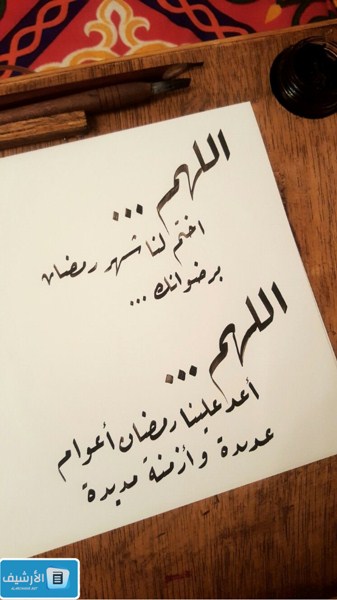 اللهم ...
اختم لنا شهر رمضان
برضوانك ...
اللهم ...
أعد علينا رمضان أعوام
عديدة وأزمنة مديدة
الأرشيف